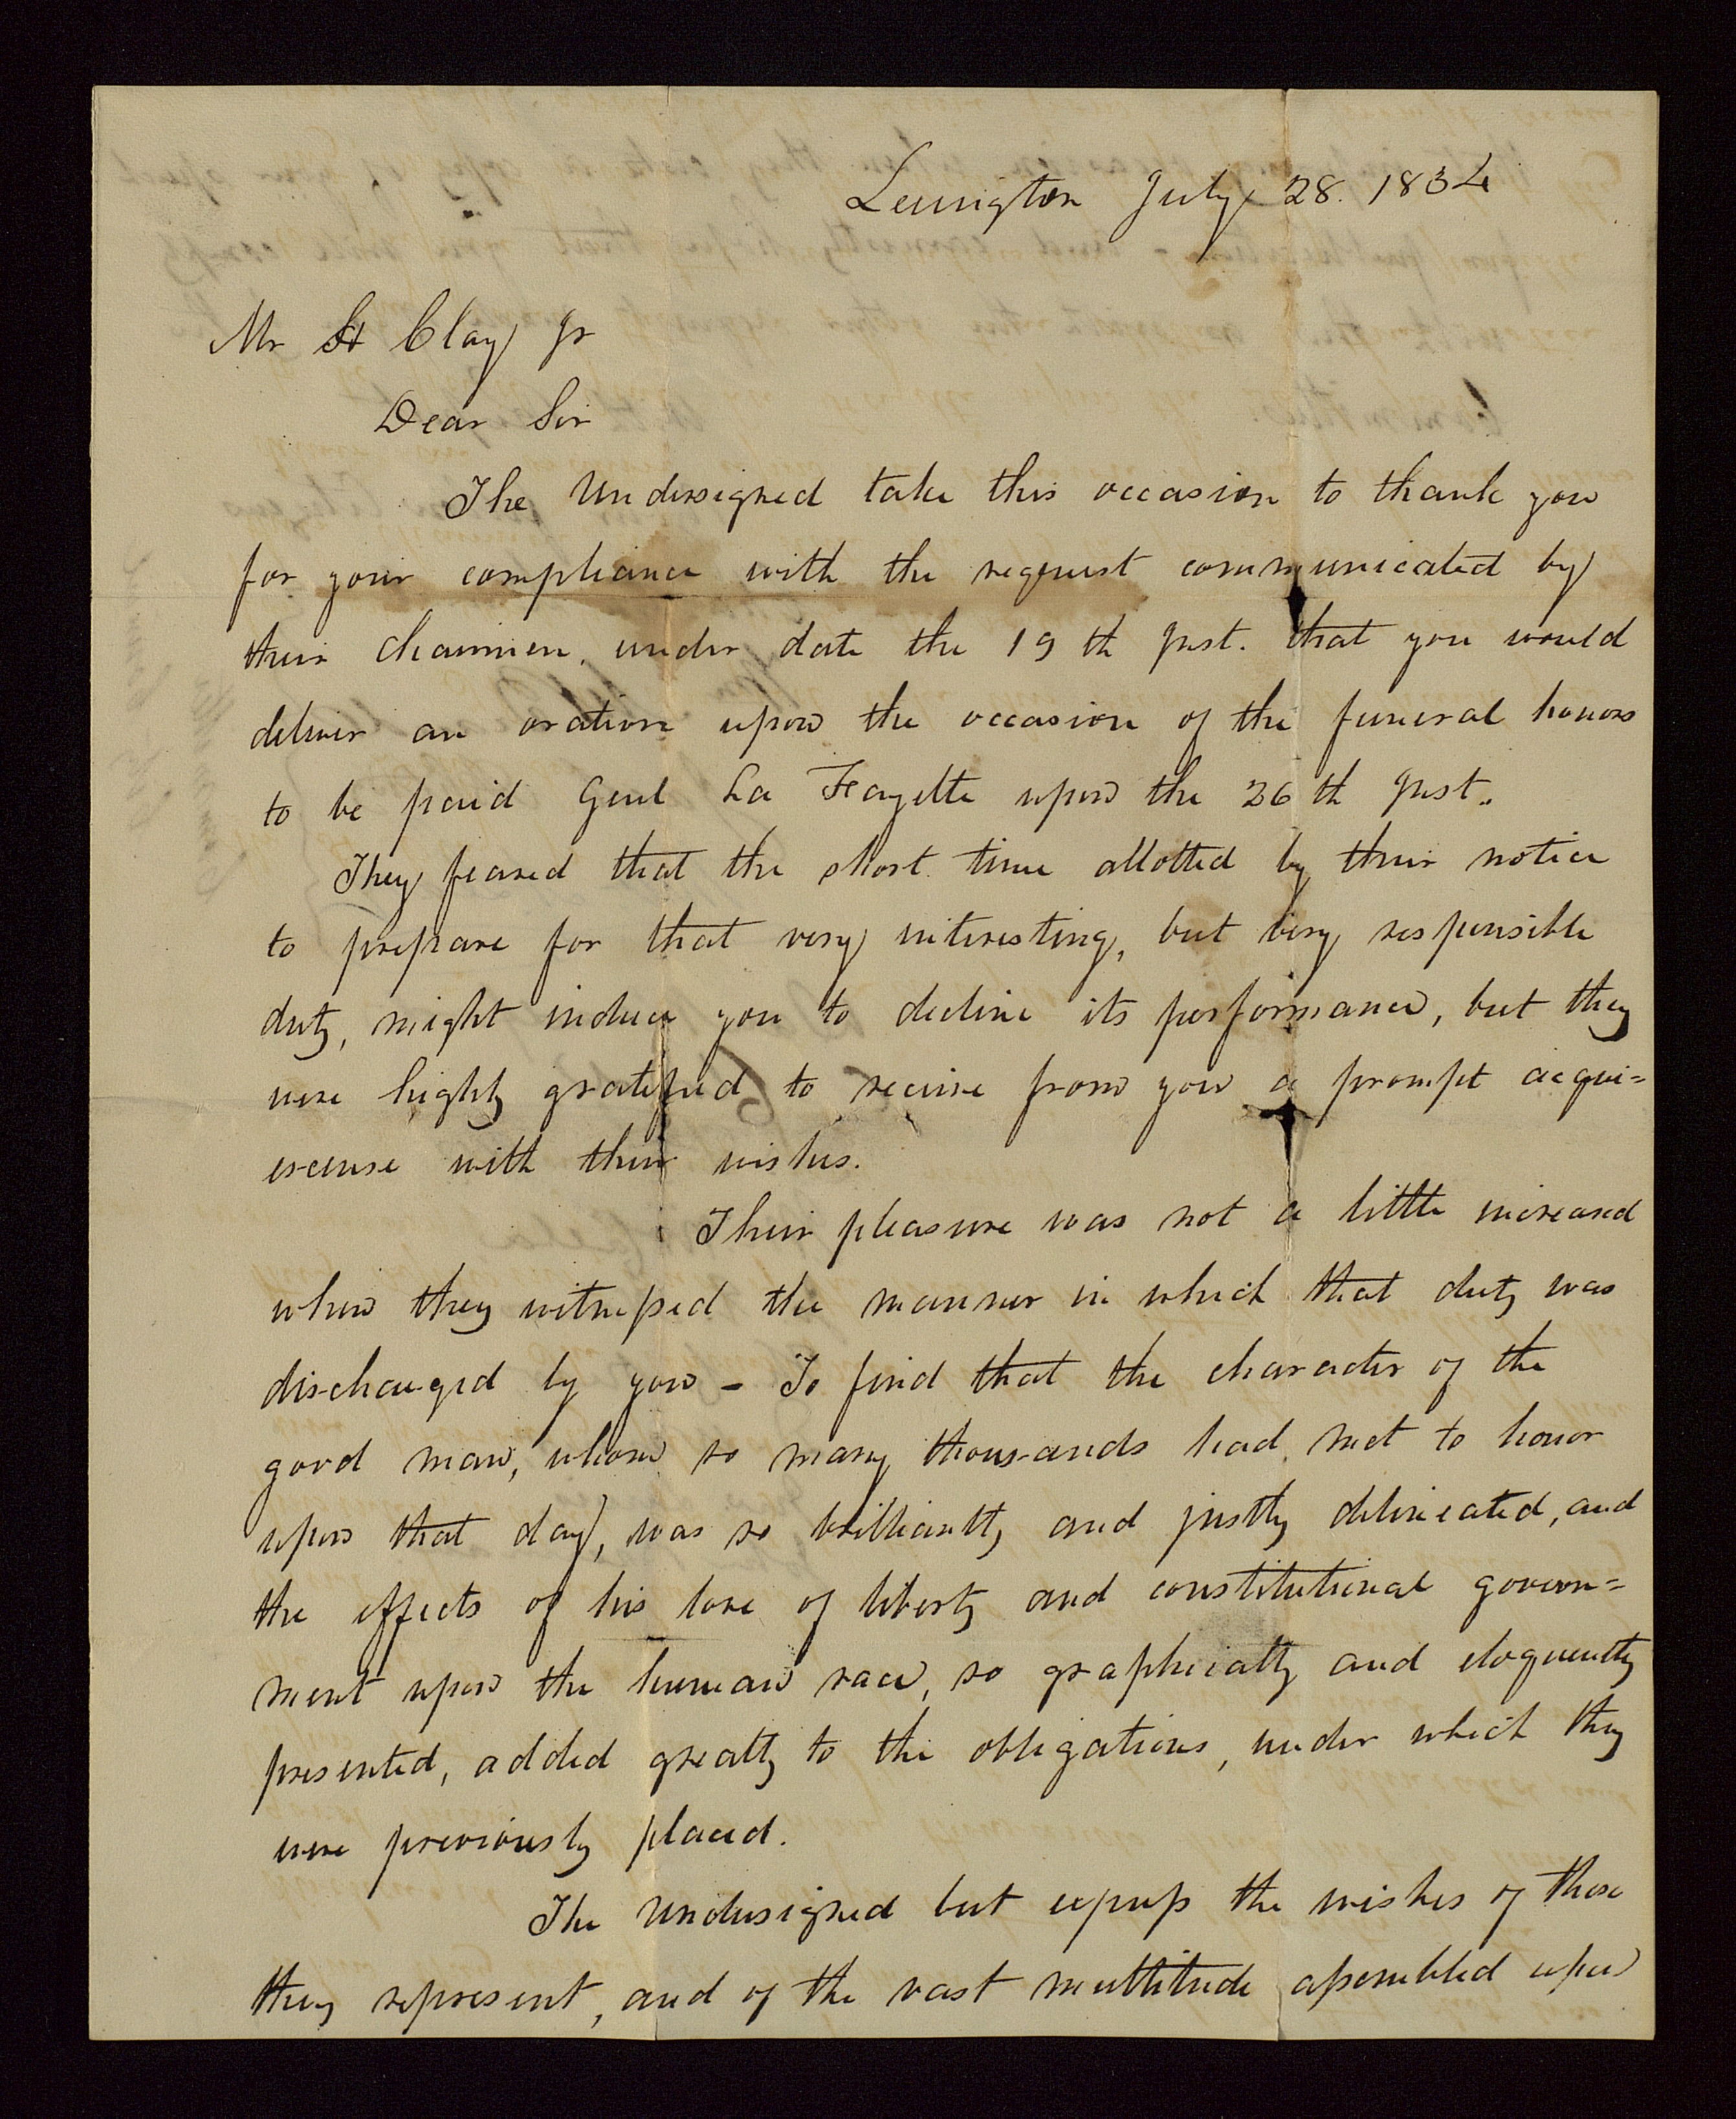 Lexington July 28. 1834
Mr H Clay Jr
Dear Sir
The Undersigned take this occasion to thank you
for your compliance with the request communicated by
their chairman, under date the 19th Inst. that you would
deliver an oration upon the occasion of the funeral honors
to be paid Genl La Fayette upon the 26th Inst.
They feared that the short time allotted by their notice
to prepare for that very interesting, but very responsible
duty, might induce you to decline its performance, but they
were highly gratified to receive from you a prompt acqui=
escense with their wishes.
Their pleasure was not a little increased
when they witnessed the manner in which that duty was
discharged by you - To find that the character of the
good man, whom so many thousands had met to honor
upon that day, was so brilliantly and justly delineated, and
the effects of his love of liberty and constitutional govern=
ment upon the human race, so graphically and eloquently
presented, added greatly to the obligations, under which they
were previously placed.
The undersigned but express the wishes of those
they represent, and of the vast multitude assembled upon